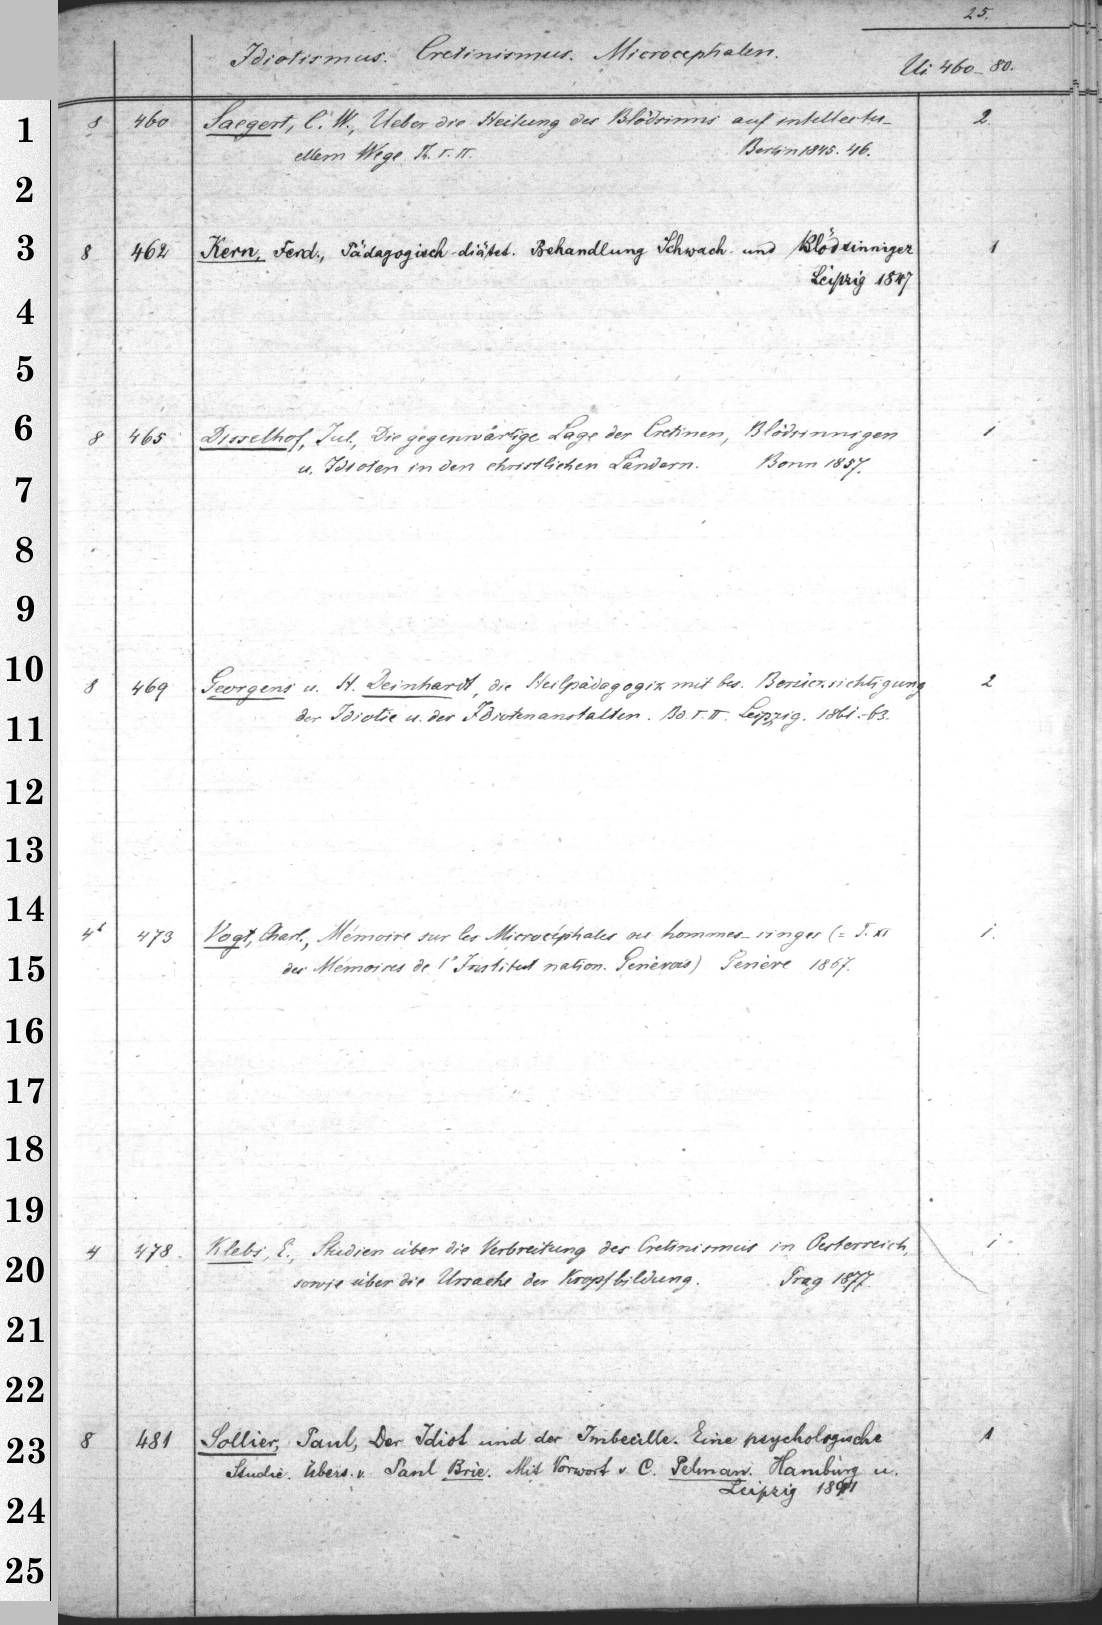 25.
Idiotismus. Cretinismus. Microcephalen.
Ui 460–80.
1
8 460 Saegert, C. W., Ueber die Heilung des Blödsinns auf intellectu- 2.
ellem Wege Th. I. II. Berlin 1845. 46.
2
3
8 462 Kern, Ferd., Pädagogisch-diätet. Behandlung Schwach- und Blödsinniger 1
Leipzig 1847
4
5
6
8 465 Disselhof, Jul., Die gegenwärtige Lage der Cretinen, Blödsinnigen 1
u. Idioten in den christlichen Ländern. Bonn 1857.
7
8
9
10
8 469 Georgens u. H. Deinhardt, die Heilpädagogik mit bes. Berücksichtigung 2
der Idiotie u. der Idiotenanstalten. Bd. I. II. Leipzig. 1861.–63.
11
12
13
14
4° 473 Vogt, Charl., Mémoire sur les Microcéphales ou hommes-singes (= T. XI 1.
des Mémoires de l'Institut nation. Genèvois) Genève 1867.
15
16
17
18
19
4 478. Klebs, E., Studien über die Verbreitung des Cretinismus in Oesterreich, 1
20
sowie über die Ursache der Kropfbildung. Prag 1877.
21
22
8 481 Sollier, Paul, Der Idiot und der Imbecille. Eine psychologische 1
23
Studie. Übers. v. Paul Brie. Mit Vorwort v. C. Pelman. Hamburg u.
Leipzig 1891
24
25